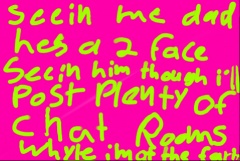 seein me dad
hes a 2 face
Seein him though i'll
Post Plenty of
Chat Rooms
Whyle im of the